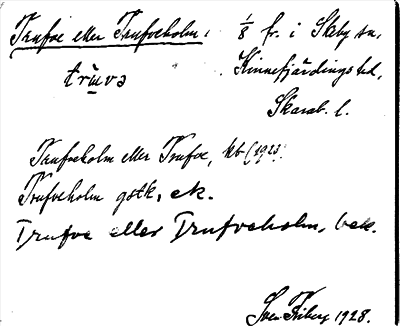 Trufve eller Trufveholm, 1/8 fr. i Skeby sn,
trụvə Kinnefjärdings hd,
Skarab. l.
Trufveholm eller Trufve, kb (1923).
Trufveholm gstk, ek.
Trufve eller Trufveholm, bek.
Sven Friberg 1928.